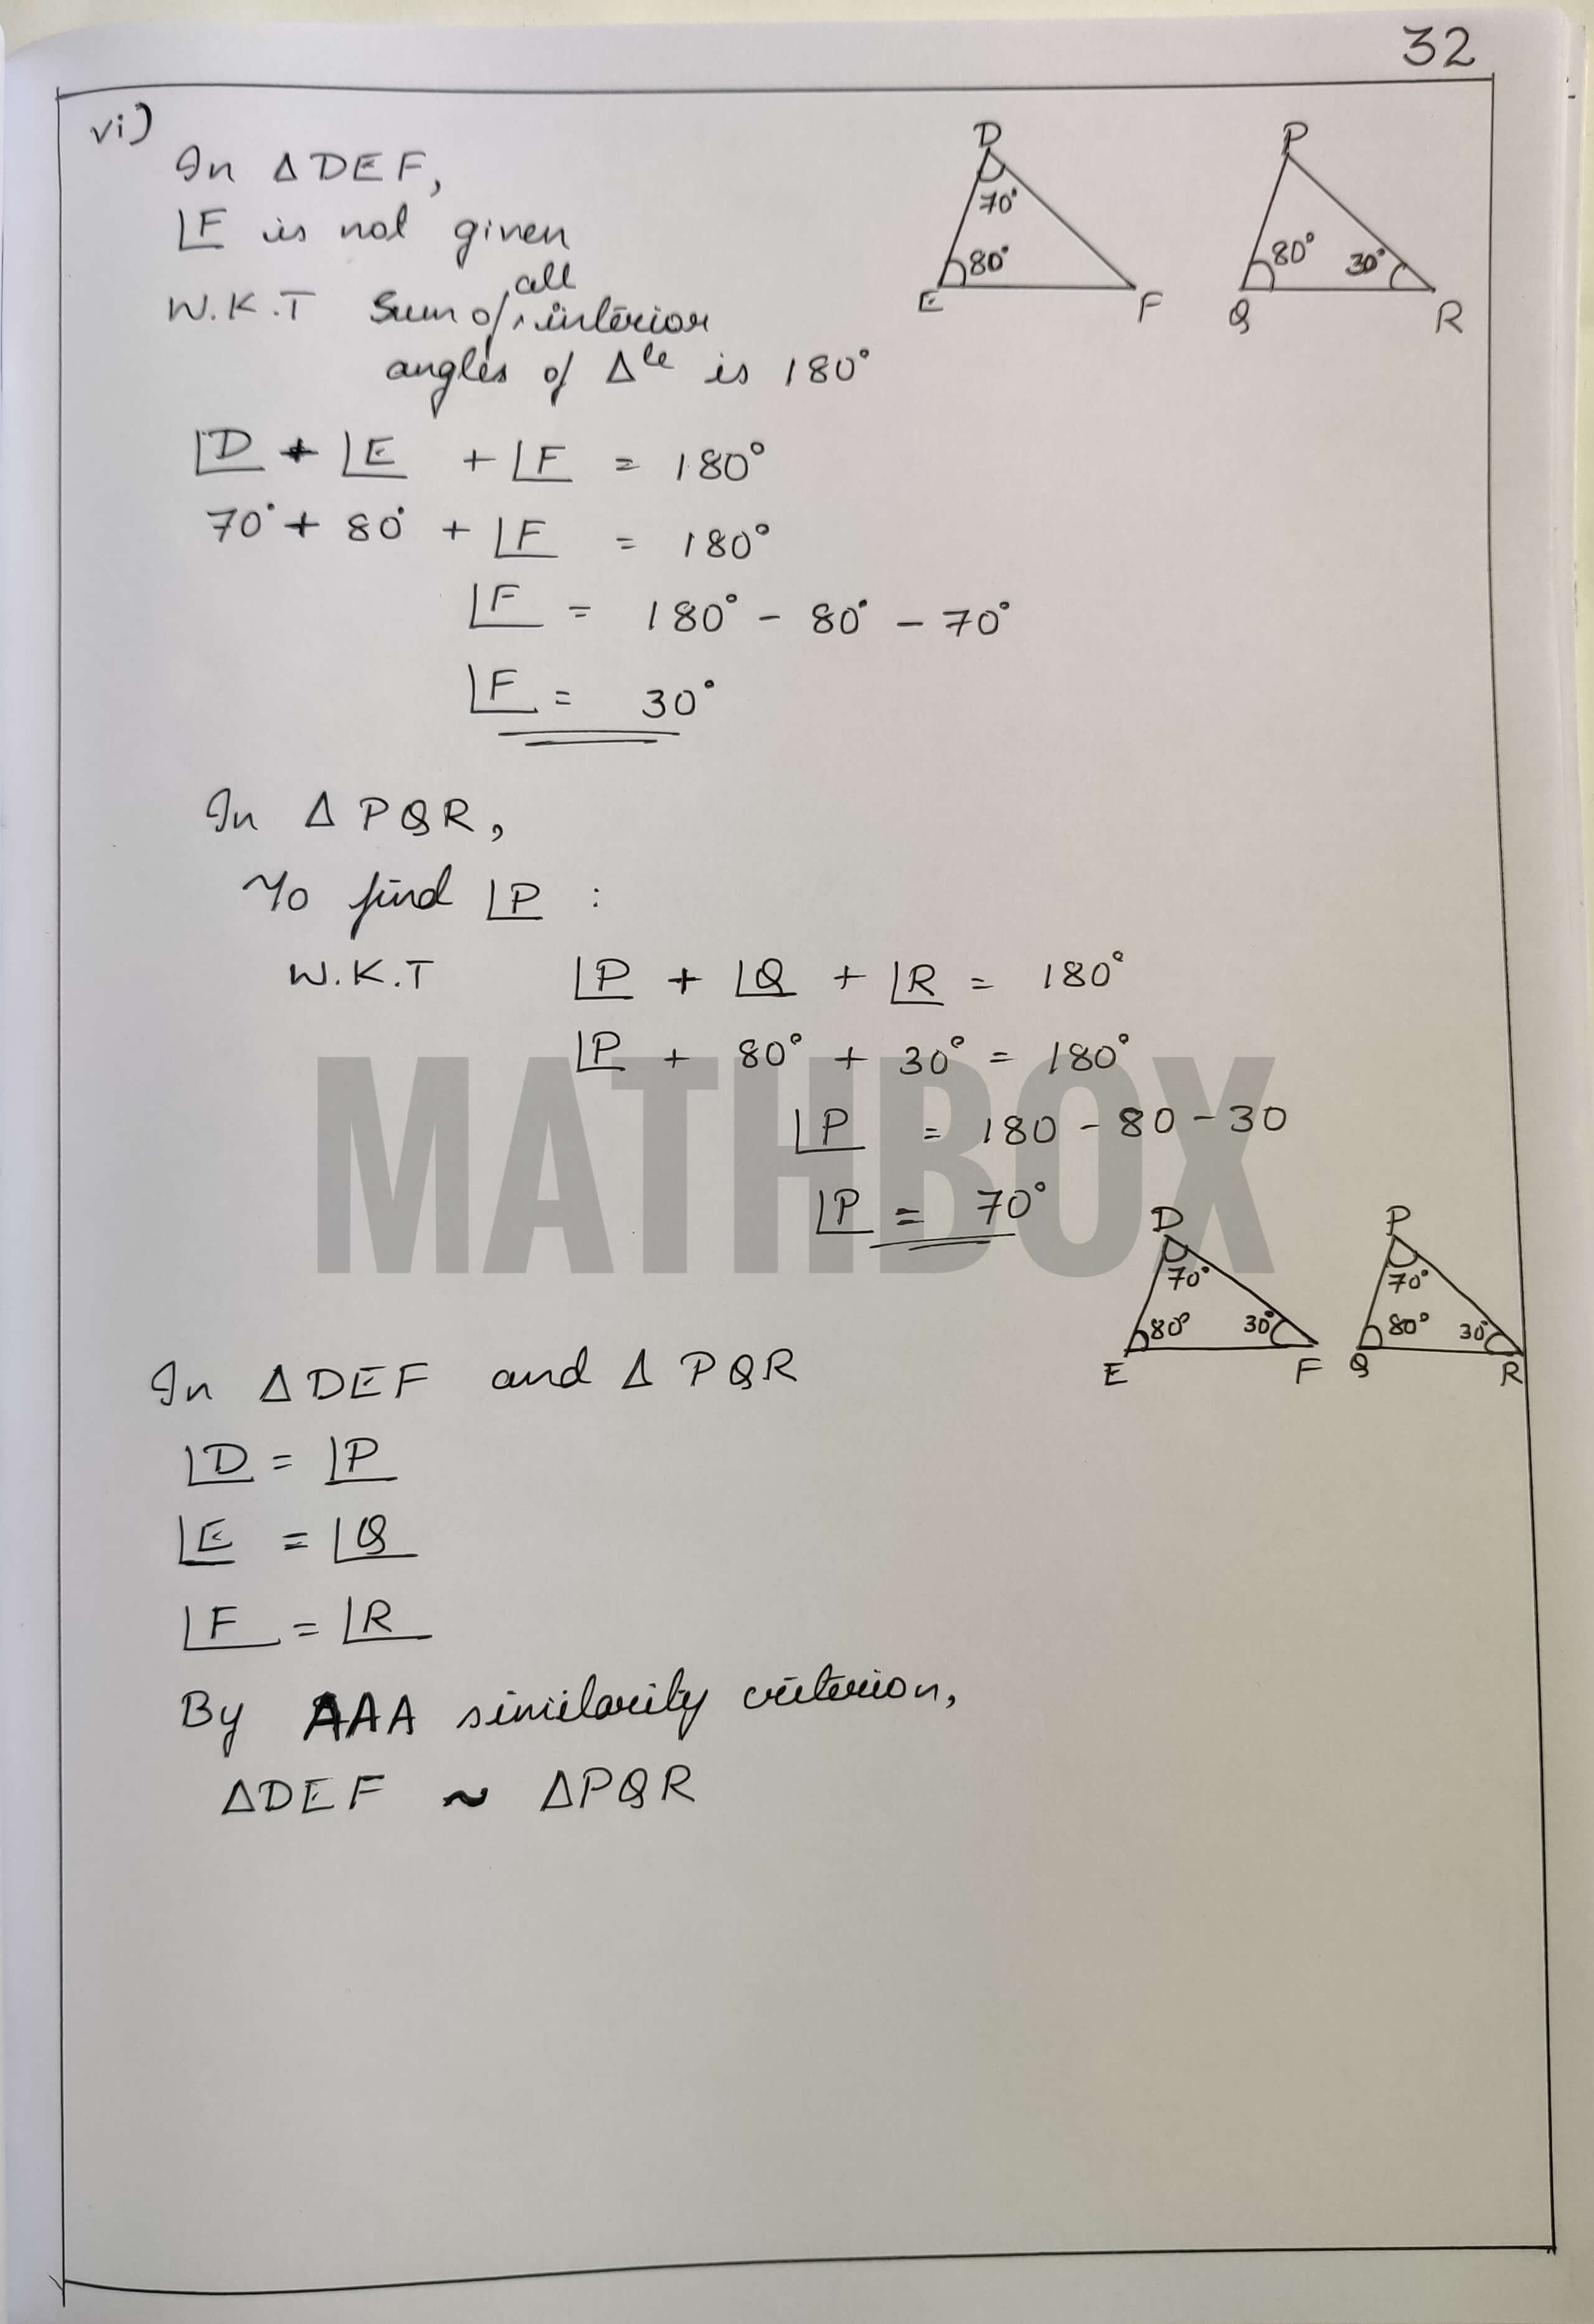 32
vi)
In △DEF,
∠F is not given
W.K.T Sum of all interior
angles of △le is 180°
D
70°
80°
E F
P
80° 30°
Q R
∠D + ∠E + ∠F = 180°
70° + 80° + ∠F = 180°
∠F = 180° - 80° - 70°
∠F = 30°
In △ PQR,
To find ∠P :
W.K.T ∠P + ∠Q + ∠R = 180°
∠P + 80° + 30° = 180°
∠P = 180 - 80 - 30
∠P = 70°
MATHBOX
D
70°
80° 30°
E F
P
70°
80° 30°
Q R
In △DEF and △ PQR
∠D = ∠P
∠E = ∠Q
∠F = ∠R
By AAA similarity criterion,
△DEF ~ △PQR